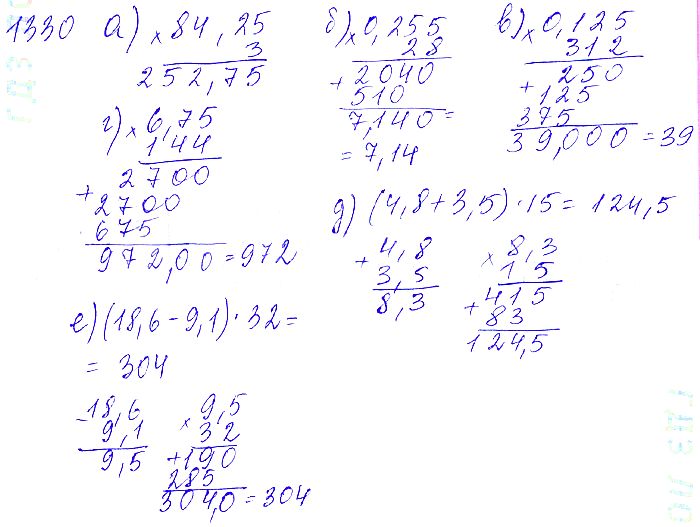 1330 а) × 84,25
3
252,75
б) × 0,255
28
+ 2040
510
7,140 =
= 7,14
в) × 0,125
312
+ 250
125
375
39,000 = 39
г) × 6,75
144
+ 2700
2700
675
972,00 = 972
д) (4,8 + 3,5) · 15 = 124,5
+ 4,8
3,5
8,3
× 8,3
15
+ 415
83
124,5
е) (18,6 - 9,1) · 32 =
= 304
- 18,6
9,1
9,5
× 9,5
32
+ 190
285
304,0 = 304